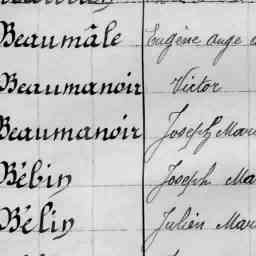 Beaumâle Eugène ange
Beaumanoir Victor
Beaumanoir Joseph Mar
Bébin Joseph Ma
Bélin Julien Mar